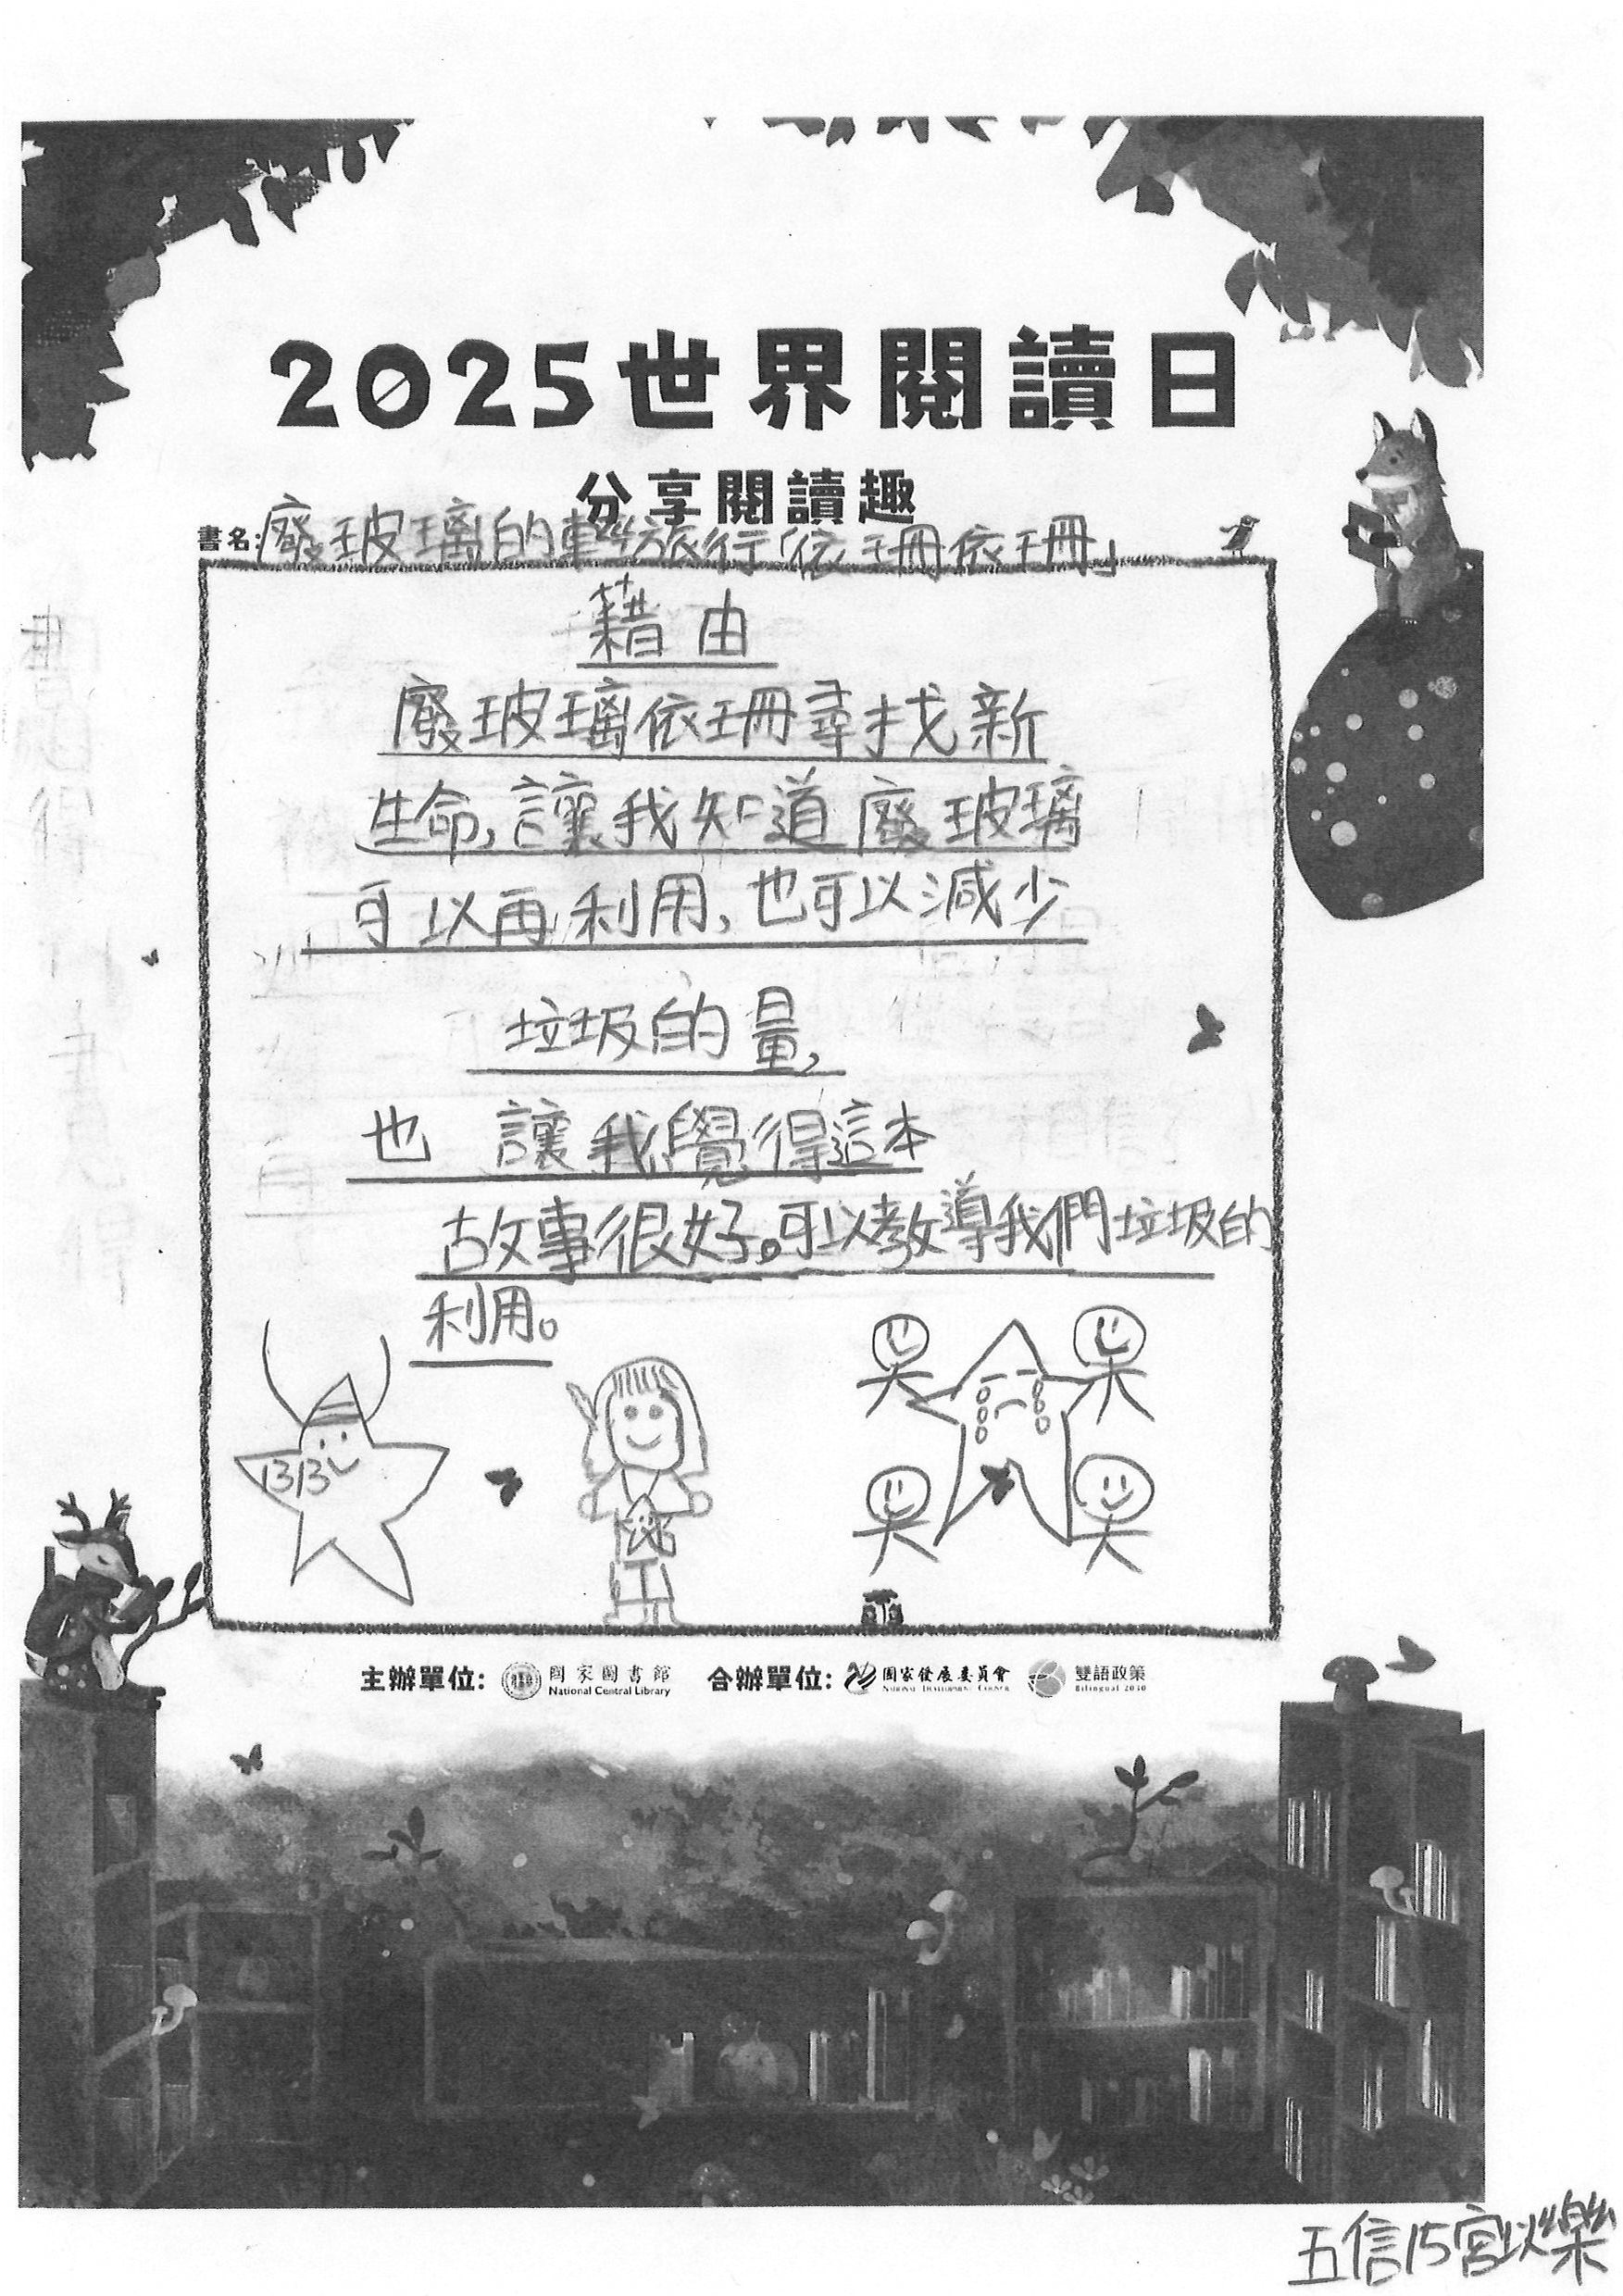 2025世界閱讀日
分享閱讀趣
書名:廢玻璃的奇幻旅行「依珊依珊」
藉由
廢玻璃依珊尋找新
生命,讓我知道廢玻璃
可以再利用,也可以減少
垃圾的量,
也 讓我覺得這本
故事很好。可以教導我們垃圾的
利用。
1313
主辦單位: 國家圖書館 National Central Library 合辦單位: 國家發展委員會 NATIONAL DEVELOPMENT COUNCIL 雙語政策 Bilingual 2030
五信15宮以樂